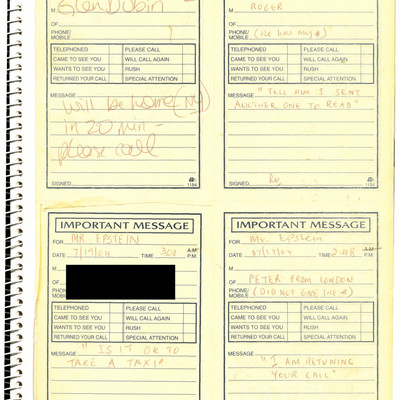 M Glen Dubin
OF
PHONE/
MOBILE
TELEPHONED PLEASE CALL
CAME TO SEE YOU WILL CALL AGAIN
WANTS TO SEE YOU RUSH
RETURNED YOUR CALL SPECIAL ATTENTION
MESSAGE
will be home (NY)
in 20 min -
please call
SIGNED 1184
M ROGER
OF
PHONE/
MOBILE (he has my #)
TELEPHONED PLEASE CALL
CAME TO SEE YOU WILL CALL AGAIN
WANTS TO SEE YOU RUSH
RETURNED YOUR CALL SPECIAL ATTENTION
MESSAGE
"TELL HIM I SENT
ANOTHER ONE TO READ"
SIGNED 1184
IMPORTANT MESSAGE
FOR MR EPSTEIN
DATE 7/19/04 TIME A.M. P.M.
M
OF
PHONE/
MOBILE
TELEPHONED PLEASE CALL
CAME TO SEE YOU WILL CALL AGAIN
WANTS TO SEE YOU RUSH
RETURNED YOUR CALL SPECIAL ATTENTION
MESSAGE "IS IT OK TO
TAKE A TAXI"
IMPORTANT MESSAGE
FOR Mr. Epstein
DATE TIME 2:48 A.M. P.M.
M PETER FROM LONDON
OF
PHONE/
MOBILE (DID NOT GIVE THE #)
TELEPHONED PLEASE CALL
CAME TO SEE YOU WILL CALL AGAIN
WANTS TO SEE YOU RUSH
RETURNED YOUR CALL SPECIAL ATTENTION
MESSAGE
"I AM RETUNING
YOUR CALL"